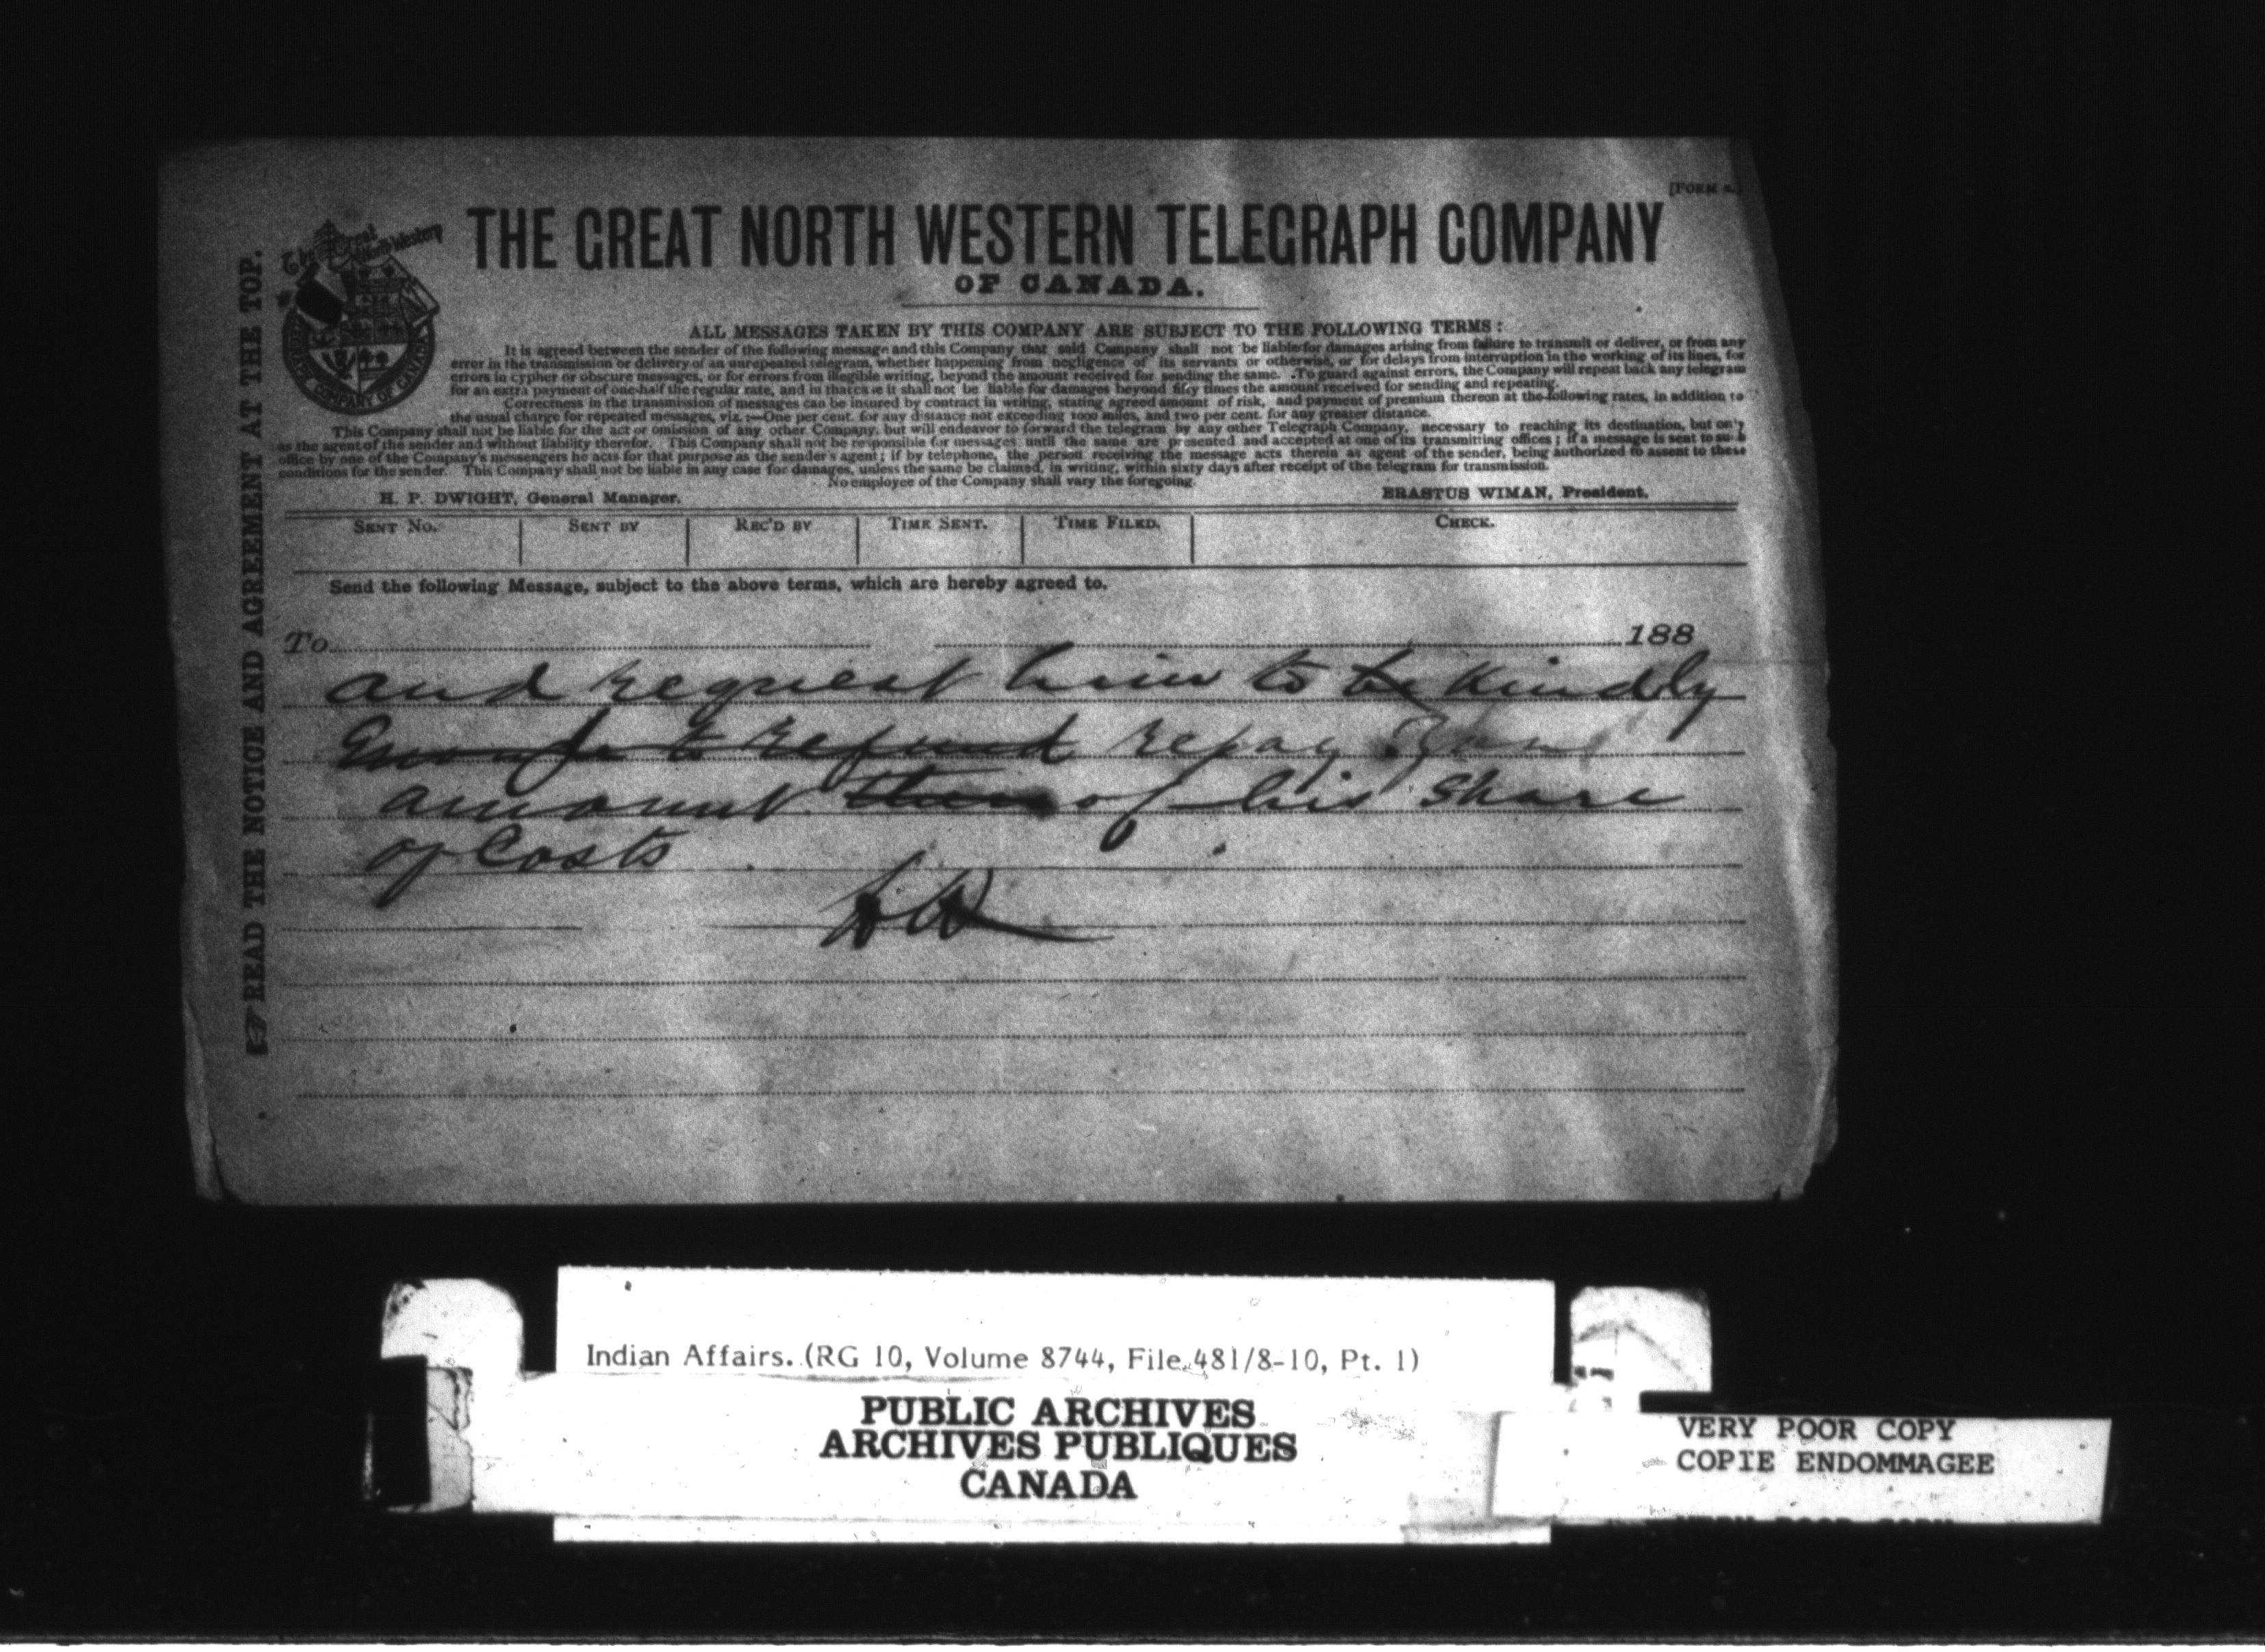 [FORM
The Great North Western
TELEGRAPH COMPANY OF CANADA
THE GREAT NORTH WESTERN TELEGRAPH COMPANY
OF CANADA.
ALL MESSAGES TAKEN BY THIS COMPANY ARE SUBJECT TO THE FOLLOWING TERMS:
It is agreed between the sender of the following message and this Company that said Company shall not be liable for damages arising from failure to transmit or deliver, or from any
error in the transmission or delivery of an unrepeated telegram, whether happening from negligence of its servants or otherwise, or for delays from interruption in the working of its lines, for
errors in cypher or obscure messages, or for errors from illegible writing, beyond the amount received for sending the same. To guard against errors, the Company will repeat back any telegram
for an extra payment of one-half the regular rate, and in that case it shall not be liable for damages beyond fifty times the amount received for sending and repeating.
Correctness in the transmission of messages can be insured by contract in writing, stating agreed amount of risk, and payment of premium thereon at the following rates, in addition to
the usual charge for repeated messages, viz.:—One per cent. for any distance not exceeding 1000 miles, and two per cent. for any greater distance.
This Company shall not be liable for the act or omission of any other Company, but will endeavor to forward the telegram by any other Telegraph Company, necessary to reaching its destination, but only
as the agent of the sender and without liability therefor. This Company shall not be responsible for messages until the same are presented and accepted at one of its transmitting offices; if a message is sent to such
office by one of the Company's messengers he acts for that purpose as the sender's agent; if by telephone, the person receiving the message acts therein as agent of the sender, being authorized to assent to these
conditions for the sender. This Company shall not be liable in any case for damages, unless the same be claimed, in writing, within sixty days after receipt of the telegram for transmission.
No employee of the Company shall vary the foregoing.
H. P. DWIGHT, General Manager. ERASTUS WIMAN, President.
SENT NO. SENT BY REC'D BY TIME SENT. TIME FILED. CHECK.
Send the following Message, subject to the above terms, which are hereby agreed to.
To 188
and request him to be kindly
Enough to refund repay
amount of his share
of Costs
READ THE NOTICE AND AGREEMENT AT THE TOP.
Indian Affairs. (RG 10, Volume 8744, File 481/8-10, Pt. 1)
PUBLIC ARCHIVES
ARCHIVES PUBLIQUES
CANADA
VERY POOR COPY
COPIE ENDOMMAGEE